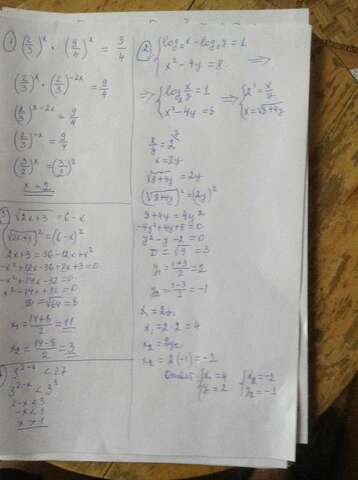 1) (2/3)^x · (9/4)^x = 3/4
(2/3)^x · (2/3)^-2x = 9/4
(2/3)^x-2x = 9/4
(2/3)^-x = 9/4
(3/2)^x = (3/2)^2
x = 2
3) √2x+3 = 6-x
(√2x+3)^2 = (6-x)^2
2x+3 = 36-12x+x^2
-x^2+12x-36+2x+3=0
x1 = 14+8/2 = 11
x2 = 14-8/2 = 3
3^2-x < 27
3^2-x < 3^3
2-x < 3
-x < 1
2) {log2 x - log2 y = 1
x^2 - 4y = 8
=> {log2 x/y = 1
x^2 - 4y = 8
=> {2^1 = x/y
x = √8+4y
x = 2y
√8+4y = 2y
(√8+4y)^2 = (2y)^2
8+4y = 4y^2
-4y^2+4y+8=0
y^2-y-2=0
D = √9 = 3
y1 = 1+3/2 = 2
y2 = 1-3/2 = -1
x1 = 2·2 = 4
x2 = 2·(-1) = -2
Ответ {x1 = 4
y = 2
{x2 = -2
y2 = -1